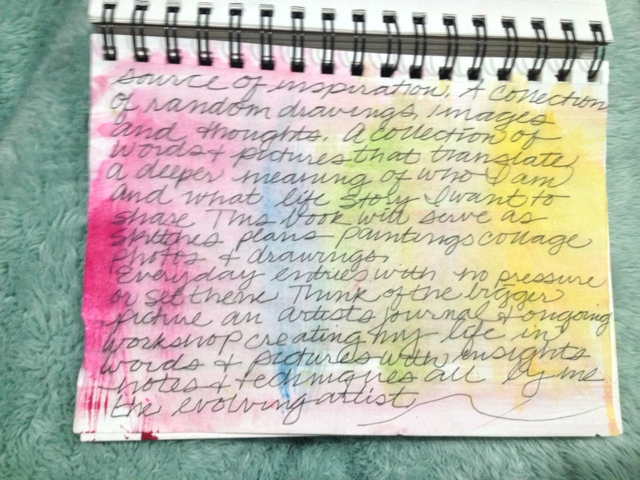 source of inspiration. A collection
of random drawings, images
and thoughts. A collection of
words + pictures that translate
a deeper meaning of who I am
and what life story I want to
share This book will serve as
sketches plans paintings collage
photos & drawings.
Everyday entries with no pressure
or set theme. Think of the bigger
picture an artists journal & ongoing
workshop creating my life in
words + pictures with insights
notes + techniques all by me
the evolving artist.